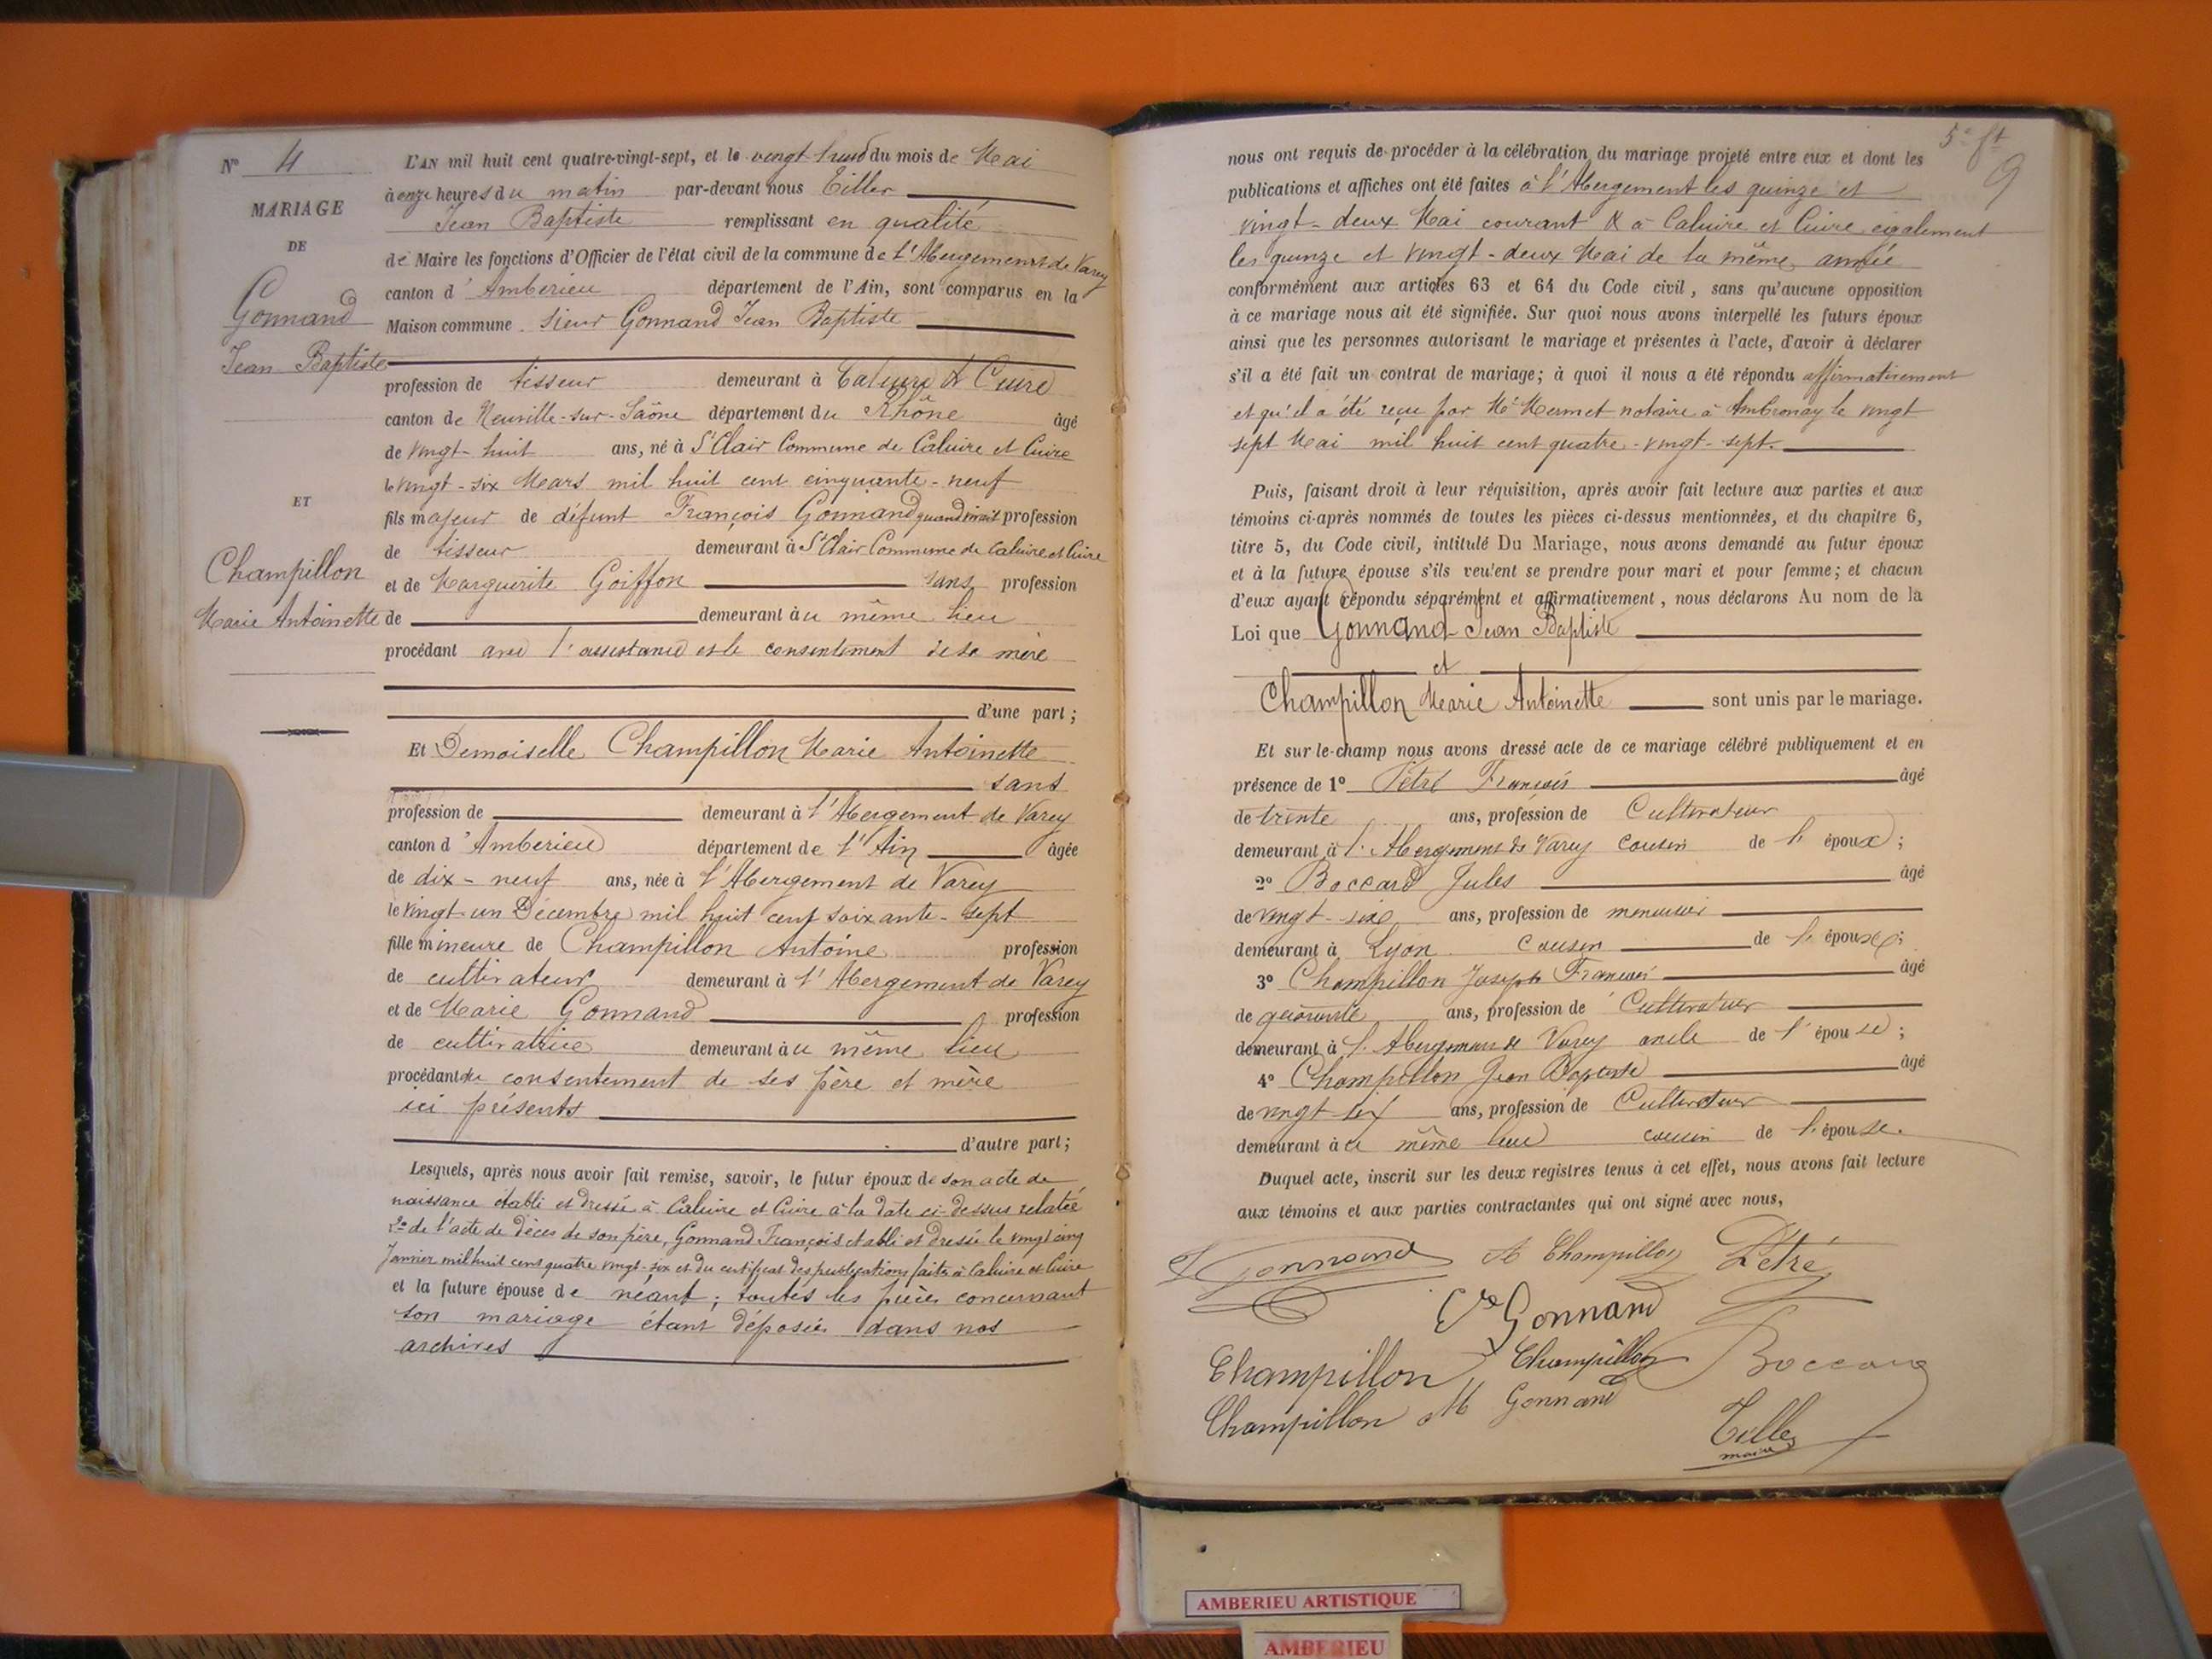 N° 4
MARIAGE
DE
Gonnand
Jean Baptiste
ET
Champillon
Marie Antoinette
L'AN mil huit cent quatre-vingt-sept, et le vingt-huit du mois de Mai
à onze heures du matin par-devant nous Tiller
Jean Baptiste remplissant en qualité
de Maire les fonctions d'Officier de l'état civil de la commune de l'Abergement de Varey
canton d'Ambérieu département de l'Ain, sont comparus en la
Maison commune Sieur Gonnand Jean Baptiste
profession de tisseur demeurant à Caluire & Cuire
canton de Neuville-sur-Saône département du Rhône âgé
de vingt-huit ans, né à St Clair Commune de Caluire et Cuire
le vingt-six Mars mil huit cent cinquante-neuf
fils majeur de défunt François Gonnand quand vivait profession
de tisseur demeurant à St Clair Commune de Caluire et Cuire
et de Marguerite Goiffon sans profession
de demeurant au même lieu
procédant avec l'assistance et le consentement de sa mère
d'une part;
Et Demoiselle Champillon Marie Antoinette
sans
profession de demeurant à l'Abergement de Varey
canton d'Amberieu département de l'Ain âgée
de dix-neuf ans, née à l'Abergement de Varey
le vingt-un Décembre mil huit cent soixante-sept
fille mineure de Champillon Antoine profession
de cultivateur demeurant à l'Abergement de Varey
et de Marie Gonnand profession
de cultivatrice demeurant au même lieu
procédant du consentement de ses père et mère
ici présents
d'autre part;
Lesquels, après nous avoir fait remise, savoir, le futur époux de son acte de
naissance établi et dressé à Caluire et Cuire à la date ci-dessus relatée
2° de l'acte de décès de son père, Gonnand François établi et dressé le vingt cinq
Janvier mil huit cent quatre vingt-six et du certificat des publications faites à Caluire et Cuire
et la future épouse de néant; toutes les pièces concernant
son mariage étant déposées dans nos
archives
5e ft
9
nous ont requis de procéder à la célébration du mariage projeté entre eux et dont les
publications et affiches ont été faites à l'Abergement les quinze et
vingt-deux Mai courant & à Caluire et Cuire également
les quinze et vingt-deux Mai de la même année
conformément aux articles 63 et 64 du Code civil, sans qu'aucune opposition
à ce mariage nous ait été signifiée. Sur quoi nous avons interpellé les futurs époux
ainsi que les personnes autorisant le mariage et présentes à l'acte, d'avoir à déclarer
s'il a été fait un contrat de mariage; à quoi il nous a été répondu affirmativement
et qu'il a été reçu par Me Mermet notaire à Ambronay le vingt
sept Mai mil huit cent quatre-vingt-sept.
Puis, faisant droit à leur réquisition, après avoir fait lecture aux parties et aux
témoins ci-après nommés de toutes les pièces ci-dessus mentionnées, et du chapitre 6,
titre 5, du Code civil, intitulé Du Mariage, nous avons demandé au futur époux
et à la future épouse s'ils veulent se prendre pour mari et pour femme; et chacun
d'eux ayant répondu séparément et affirmativement, nous déclarons Au nom de la
Loi que Gonnand Jean Baptiste
et
Champillon Marie Antoinette sont unis par le mariage.
Et sur-le-champ nous avons dressé acte de ce mariage célébré publiquement et en
présence de 1° Pétré François âgé
de trente ans, profession de Cultivateur
demeurant à l'Abergement de Varey cousin de l'époux;
2° Boccard Jules âgé
de vingt-six ans, profession de menuisier
demeurant à Lyon cousin de l'époux;
3° Champillon Joseph François âgé
de quarante ans, profession de Cultivateur
demeurant à l'Abergement de Varey oncle de l'épouse;
4° Champillon Jean Baptiste âgé
de vingt-six ans, profession de Cultivateur
demeurant au même lieu cousin de l'épouse.
Duquel acte, inscrit sur les deux registres tenus à cet effet, nous avons fait lecture
aux témoins et aux parties contractantes qui ont signé avec nous,
J Gonnand A Champillon Pétré
Ve Gonnand
Champillon Champillon Boccard
Champillon M Gonnand
Tiller
maire
AMBERIEU ARTISTIQUE
AMBERIEU